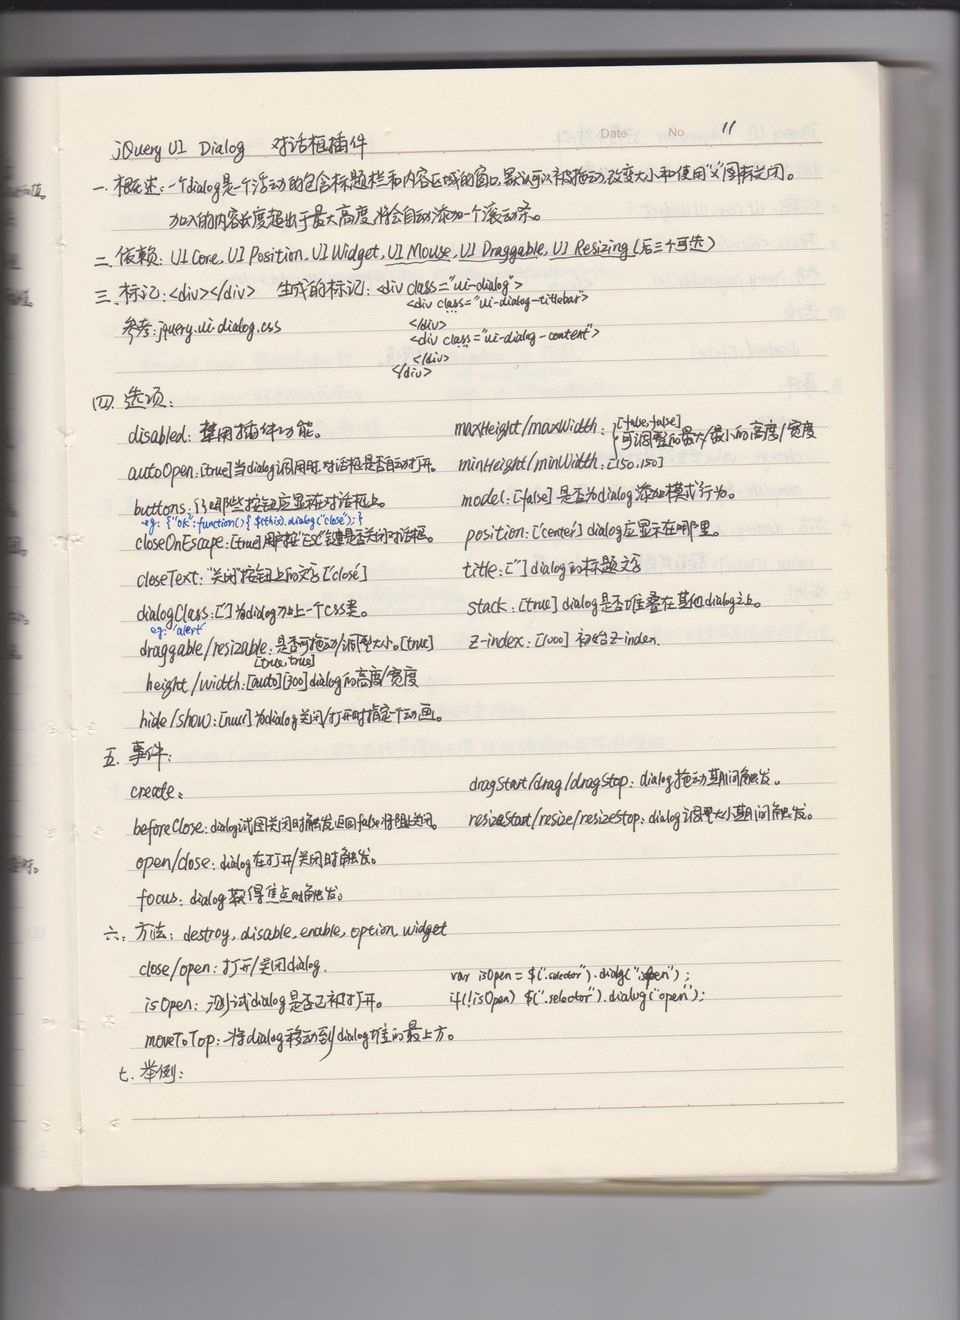 Date No 11
jQuery UI Dialog 对话框插件
一. 概述:一个dialog是一个浮动的包含标题栏和内容区域的窗口,默认可以被拖动,改变大小和使用"x"图标关闭。
加入的内容长度超出于最大高度,将会自动添加一个滚动条。
二. 依赖: UI Core, UI Position, UI Widget, UI Mouse, UI Draggable, UI Resizing (后三个可选)
三. 标记: <div></div> 生成的标记: <div class="ui-dialog">
<div class="ui-dialog-titlebar">
...
参考: jquery.ui.dialog.css </div>
<div class="ui-dialog-content">
...
</div>
</div>
四. 选项:
disabled: 禁用插件功能。
maxHeight/maxWidth: [false,false]
可调整的最大/最小的高度/宽度
autoOpen: [true]当dialog调用时,对话框是否自动打开。
minHeight/minWidth: [150,150]
buttons: {}哪些按钮应显示在对话框上。
eg: {"ok":function(){ $(this).dialog("close"); }
model: [false] 是否为dialog添加模式行为。
closeOnEscape: [true]用户按"ESC"键是否关闭对话框。
position: ['center'] dialog应显示在哪里。
closeText: "关闭"按钮上的文字['close']
title: [''] dialog的标题文字
dialogClass: ['']为dialog加上一个css类。
eg: 'alert'
stack: [true] dialog是否堆叠在其他dialog之上。
draggable/resizable: 是否可拖动/调整大小。[true]
[true,true]
z-index: [1000] 初始z-index.
height/width: [auto][300]dialog的高度/宽度
hide/show: [null]为dialog关闭/打开时指定个动画。
五. 事件:
create:
dragStart/drag/dragStop: dialog拖动期间触发。
beforeClose: dialog试图关闭时触发,返回false将阻止关闭。
resizeStart/resize/resizeStop: dialog调整大小期间触发。
open/close: dialog在打开/关闭时触发。
focus: dialog获得焦点时触发。
六. 方法: destroy, disable, enable, option, widget
close/open: 打开/关闭dialog.
var isOpen = $(".selector").dialog("isOpen");
isOpen: 测试dialog是否已被打开。
if(!isOpen) $(".selector").dialog("open");
moveToTop: 将dialog移动到dialog堆的最上方。
七. 举例: